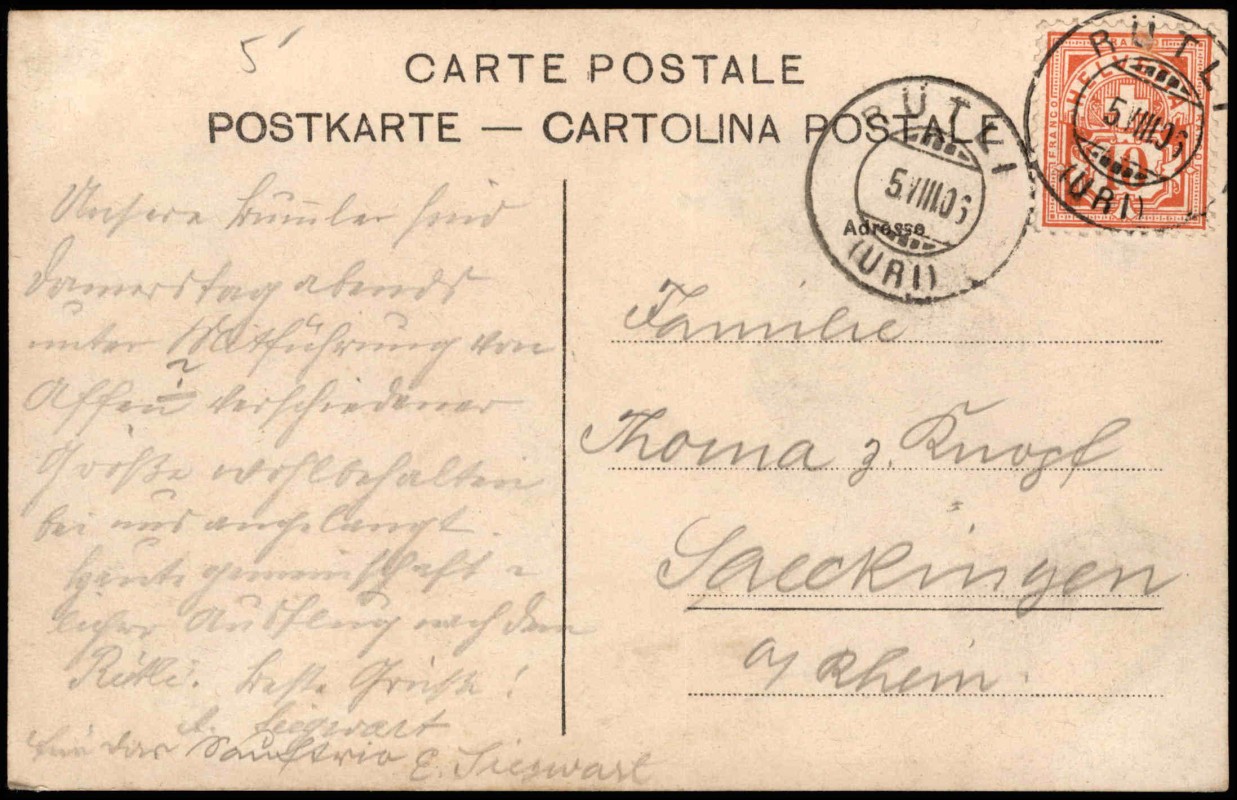 5
CARTE POSTALE
POSTKARTE — CARTOLINA POSTALE
RÜTLI
5.VIII.06
(URI)
FRANCO
HELVETIA
10
RÜTLI
5.VIII.06
(URI)
Adresse
Unsere Bummler sind
Donnerstag abends
unter Mitführung von
Affen ? verschiedener
Größe wohlbehalten
bei uns angelangt.
Heute gemeinschaft-
licher Ausflug nach dem
Rütli. Beste Grüße!
A. Siegwart
Für das Sauftrio E. Siegwart
Familie
Thoma z. Knopf
Saeckingen
a/ Rhein.